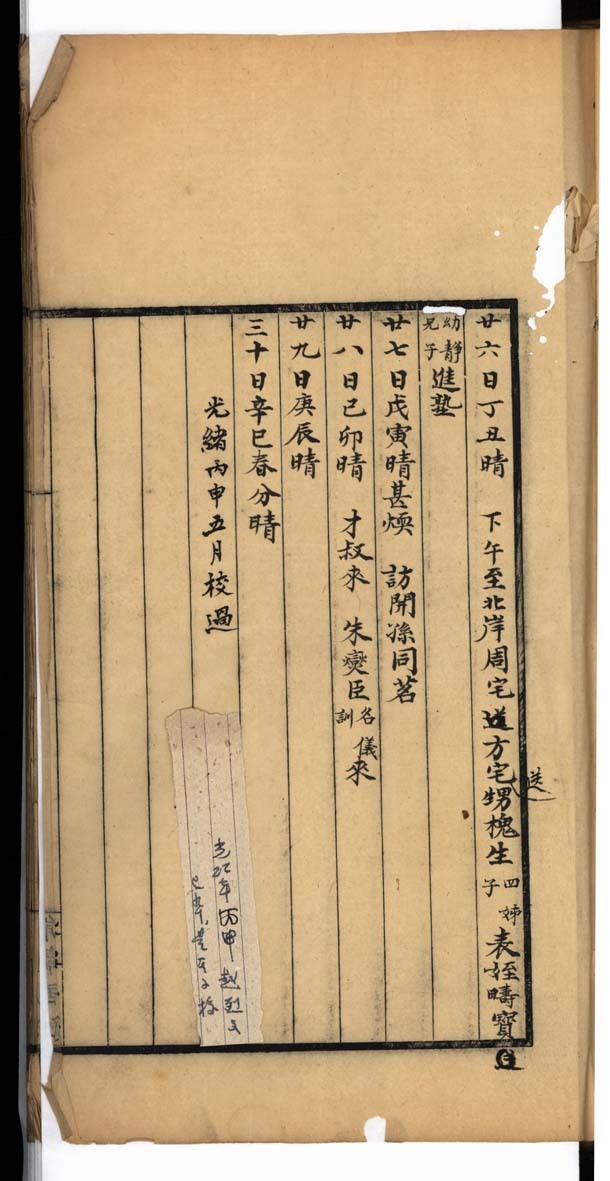 廿六日丁丑晴　下午至北岸周宅送方宅甥槐生四姊子表姪疇寶
送
幼靜兄子進塾
廿七日戊寅晴甚煗　訪開孫同茗
廿八日己卯晴　才叔來　朱夑臣名訓儀來
廿九日庚辰晴
三十日辛巳春分晴
光緒丙申五月校過
丙申 趙烈文